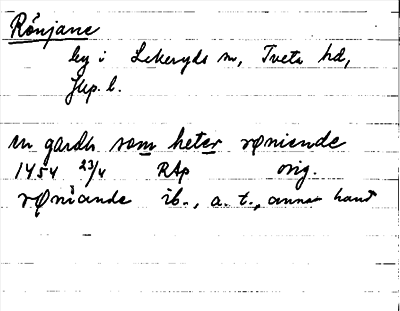 Rönjane
by i Lekeryds sn, Tveta hd,
Jkp. l.
en gardh som heter røniende
1454 23/4 RAp orig.
røniande ib., a. t., annan hand